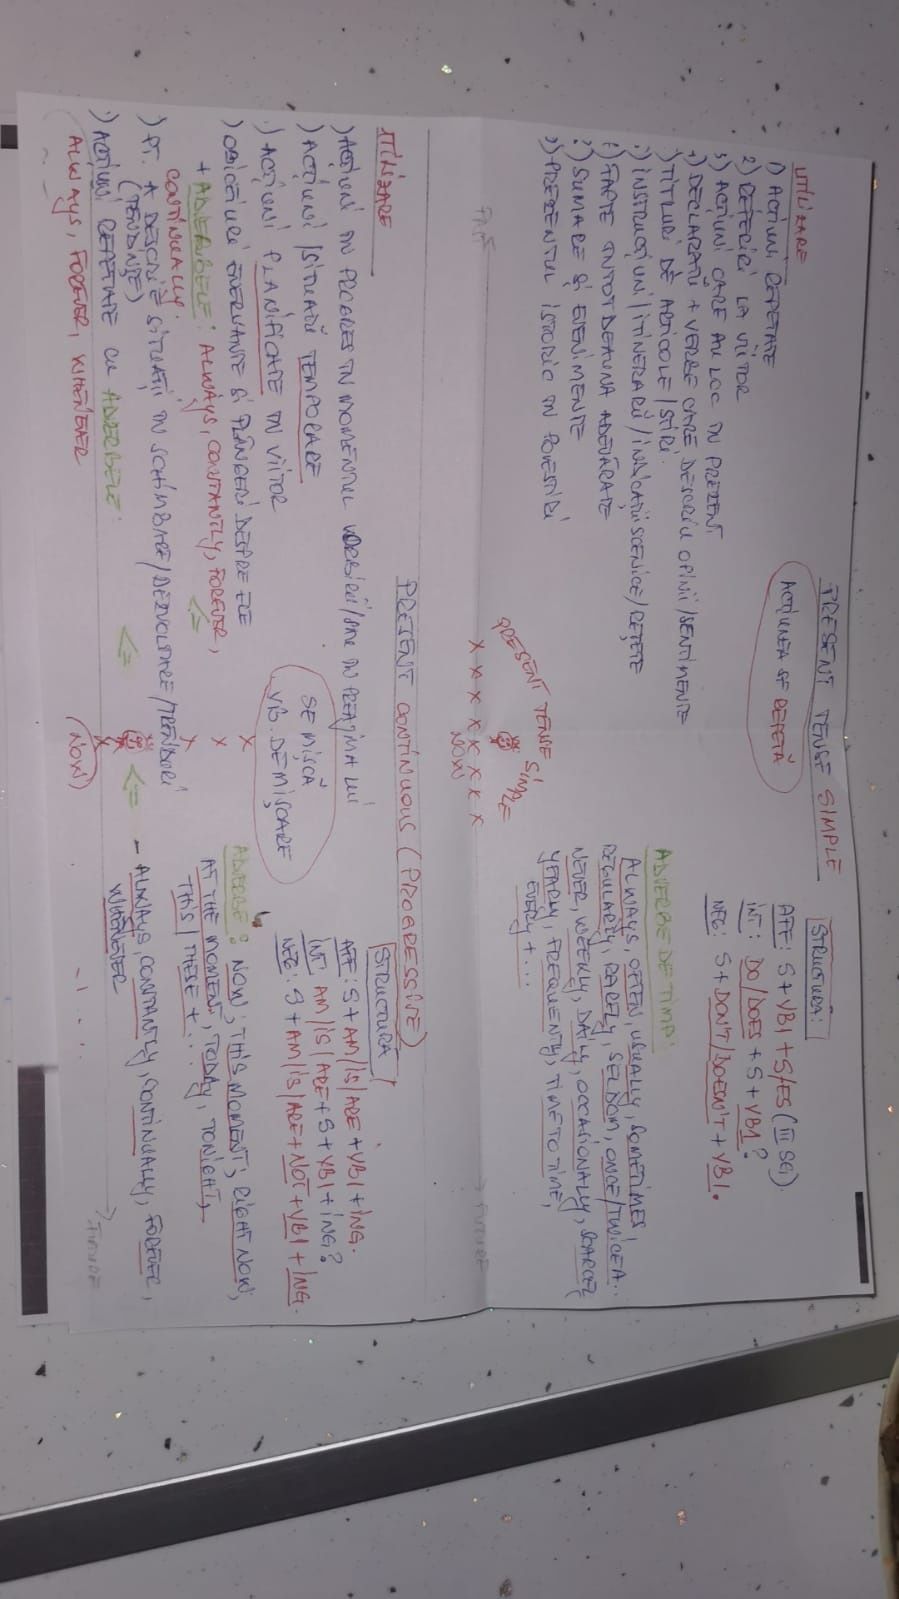 PRESENT TENSE SIMPLE
UTILIZARE
ACȚIUNEA SE REPETĂ
STRUCTURĂ:
1) ACȚIUNI REPETATE
2) REFERIRI LA VIITOR
3) ACȚIUNI CARE AU LOC ÎN PREZENT
DECLARAȚII + VERBE CARE DESCRIU OPINII/SENTIMENTE
TITLURI DE ARTICOLE/ȘTIRI
INSTRUCȚIUNI/ITINERARII/INDICAȚII SCENICE/REȚETE
FAPTE ÎNTOTDEAUNA ADEVĂRATE
SUMARE ȘI EVENIMENTE
PREZENTUL ISTORIC ÎN POVESTIRI
AFF: S+VB1+S/ES (III SG)
INT: DO/DOES+S+VB1?
NEG: S+DON'T/DOESN'T+VB1.
ADVERBE DE TIMP:
ALWAYS, OFTEN, USUALLY, SOMETIMES,
REGULARLY, RARELY, SELDOM, ONCE/TWICE A..
NEVER, WEEKLY, DAILY, OCCASIONALLY,
YEARLY, FREQUENTLY, TIME TO TIME,
EVERY+...
PRESENT TENSE SIMPLE
PAST
X X X X X X X X
NOW
FUTURE
PRESENT CONTINUOUS (PROGRESSIVE)
UTILIZARE
STRUCTURA
) ACȚIUNI ÎN PROGRES ÎN MOMENTUL VORBIRII/SAU ÎN PREAJMA LUI
) ACȚIUNI/SITUAȚII TEMPORARE
) ACȚIUNI PLANIFICATE ÎN VIITOR
) OBICEIURI ENERVANTE ȘI PLÂNGERI DESPRE ELE
+ ADVERBELE: ALWAYS, CONSTANTLY, FOREVER,
CONTINUALLY.
) PT. A DESCRIE SITUAȚII ÎN SCHIMBARE/DEZVOLTARE/TRENDURI
(TENDINȚE)
) ACȚIUNI REPETATE CU ADVERBELE:
ALWAYS, FOREVER, WHENEVER
SE MIȘCĂ
VB. DE MIȘCARE
AFF: S+AM/IS/ARE+VB1+ING.
INT: AM/IS/ARE+S+VB1+ING?
NEG: S+AM/IS/ARE+NOT+VB1+ING.
ADVERBE: NOW, THIS MOMENT, RIGHT NOW,
AT THE MOMENT, TODAY, TONIGHT,
THIS/THESE+...
- ALWAYS, CONSTANTLY, CONTINUALLY, FOREVER,
WHENEVER
(NOW)
FUTURE